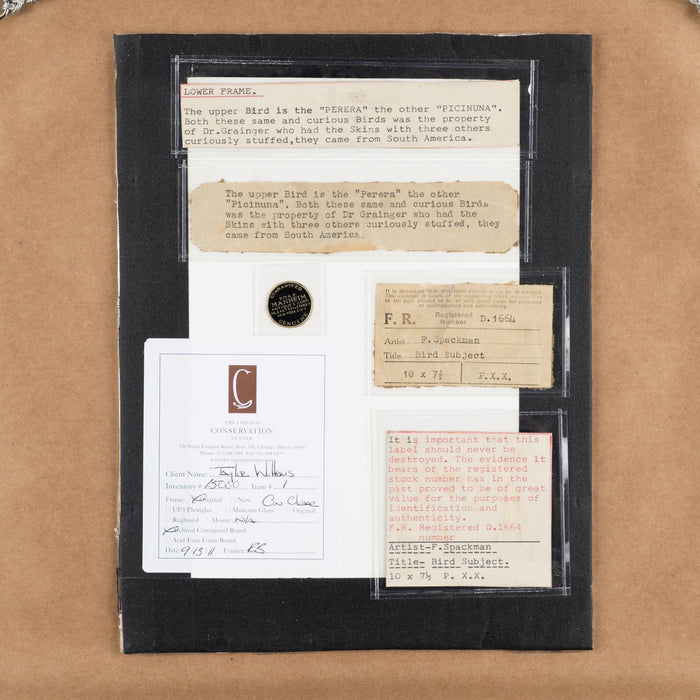 LOWER FRAME.
The upper Bird is the "PERERA" the other "PICINUNA".
Both these same and curious Birds was the property
of Dr.Grainger who had the Skins with three others
curiously stuffed,they came from South America.
The upper Bird is the "Perera" the other
"Picinuna". Both these same and curious Birds
was the property of Dr Grainger who had the
Skins with three others curiously stuffed, they
came from South America.
GUARANTEED
ONLY
MANHEIM
NEW YORK CITY
GENUINE
It is important that this label should never be destroyed.
The evidence it bears of the registered stock number has in
the past proved to be of very great value for purposes
of identification and authenticity.
F. R. Registered Number D.1664
Artist F. Spackman
Title Bird Subject
10 x 7½ P.X.X.
C
THE CHICAGO
CONSERVATION
CENTER
730 North Franklin Street, Suite 701, Chicago, Illinois 60654
Phone: 312.944.5401 Fax: 312.944.5479
www.chicagoconservation.com
Client Name:
Inventory# 15050 Item# 1
Frame: Original New
UF3 Plexiglas Museum Glass Original
Ragboard Mount: N/A
Archival Corrugated Board
Acid-Free Foam Board
Date: 9.13.11 Framer: RS
It is important that this
label should never be
destroyed. The evidence it
bears of the registered
stock number has in the
past proved to be of great
value for the purposes of
identification and
authenticity.
F.R. Registered D.1664
number
Artist-F.Spackman
Title- Bird Subject.
10 x 7½ P. X.X.